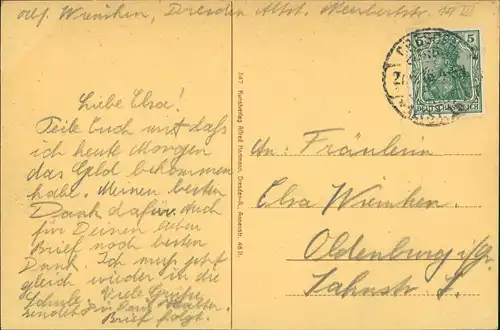 Wremken, Dresden Altst. 19 III
Liebe Elsa!
Teile Euch mit daß
ich heute Morgen
das Geld bekommen
habe. Meinen besten
Dank dafür. Auch
für Deinen lieben
Brief noch besten
Dank. Ich muß jetzt
gleich wieder in die
Schule. Viele Grüße
sendet
Brief folgt.
347 Kunstverlag Alfred Hartmann, Dresden-A., Rosenstr. 48 II.
5
DEUTSCHES REICH
An: Fräulein
Elsa Wremken.
Oldenburg i/Gr.